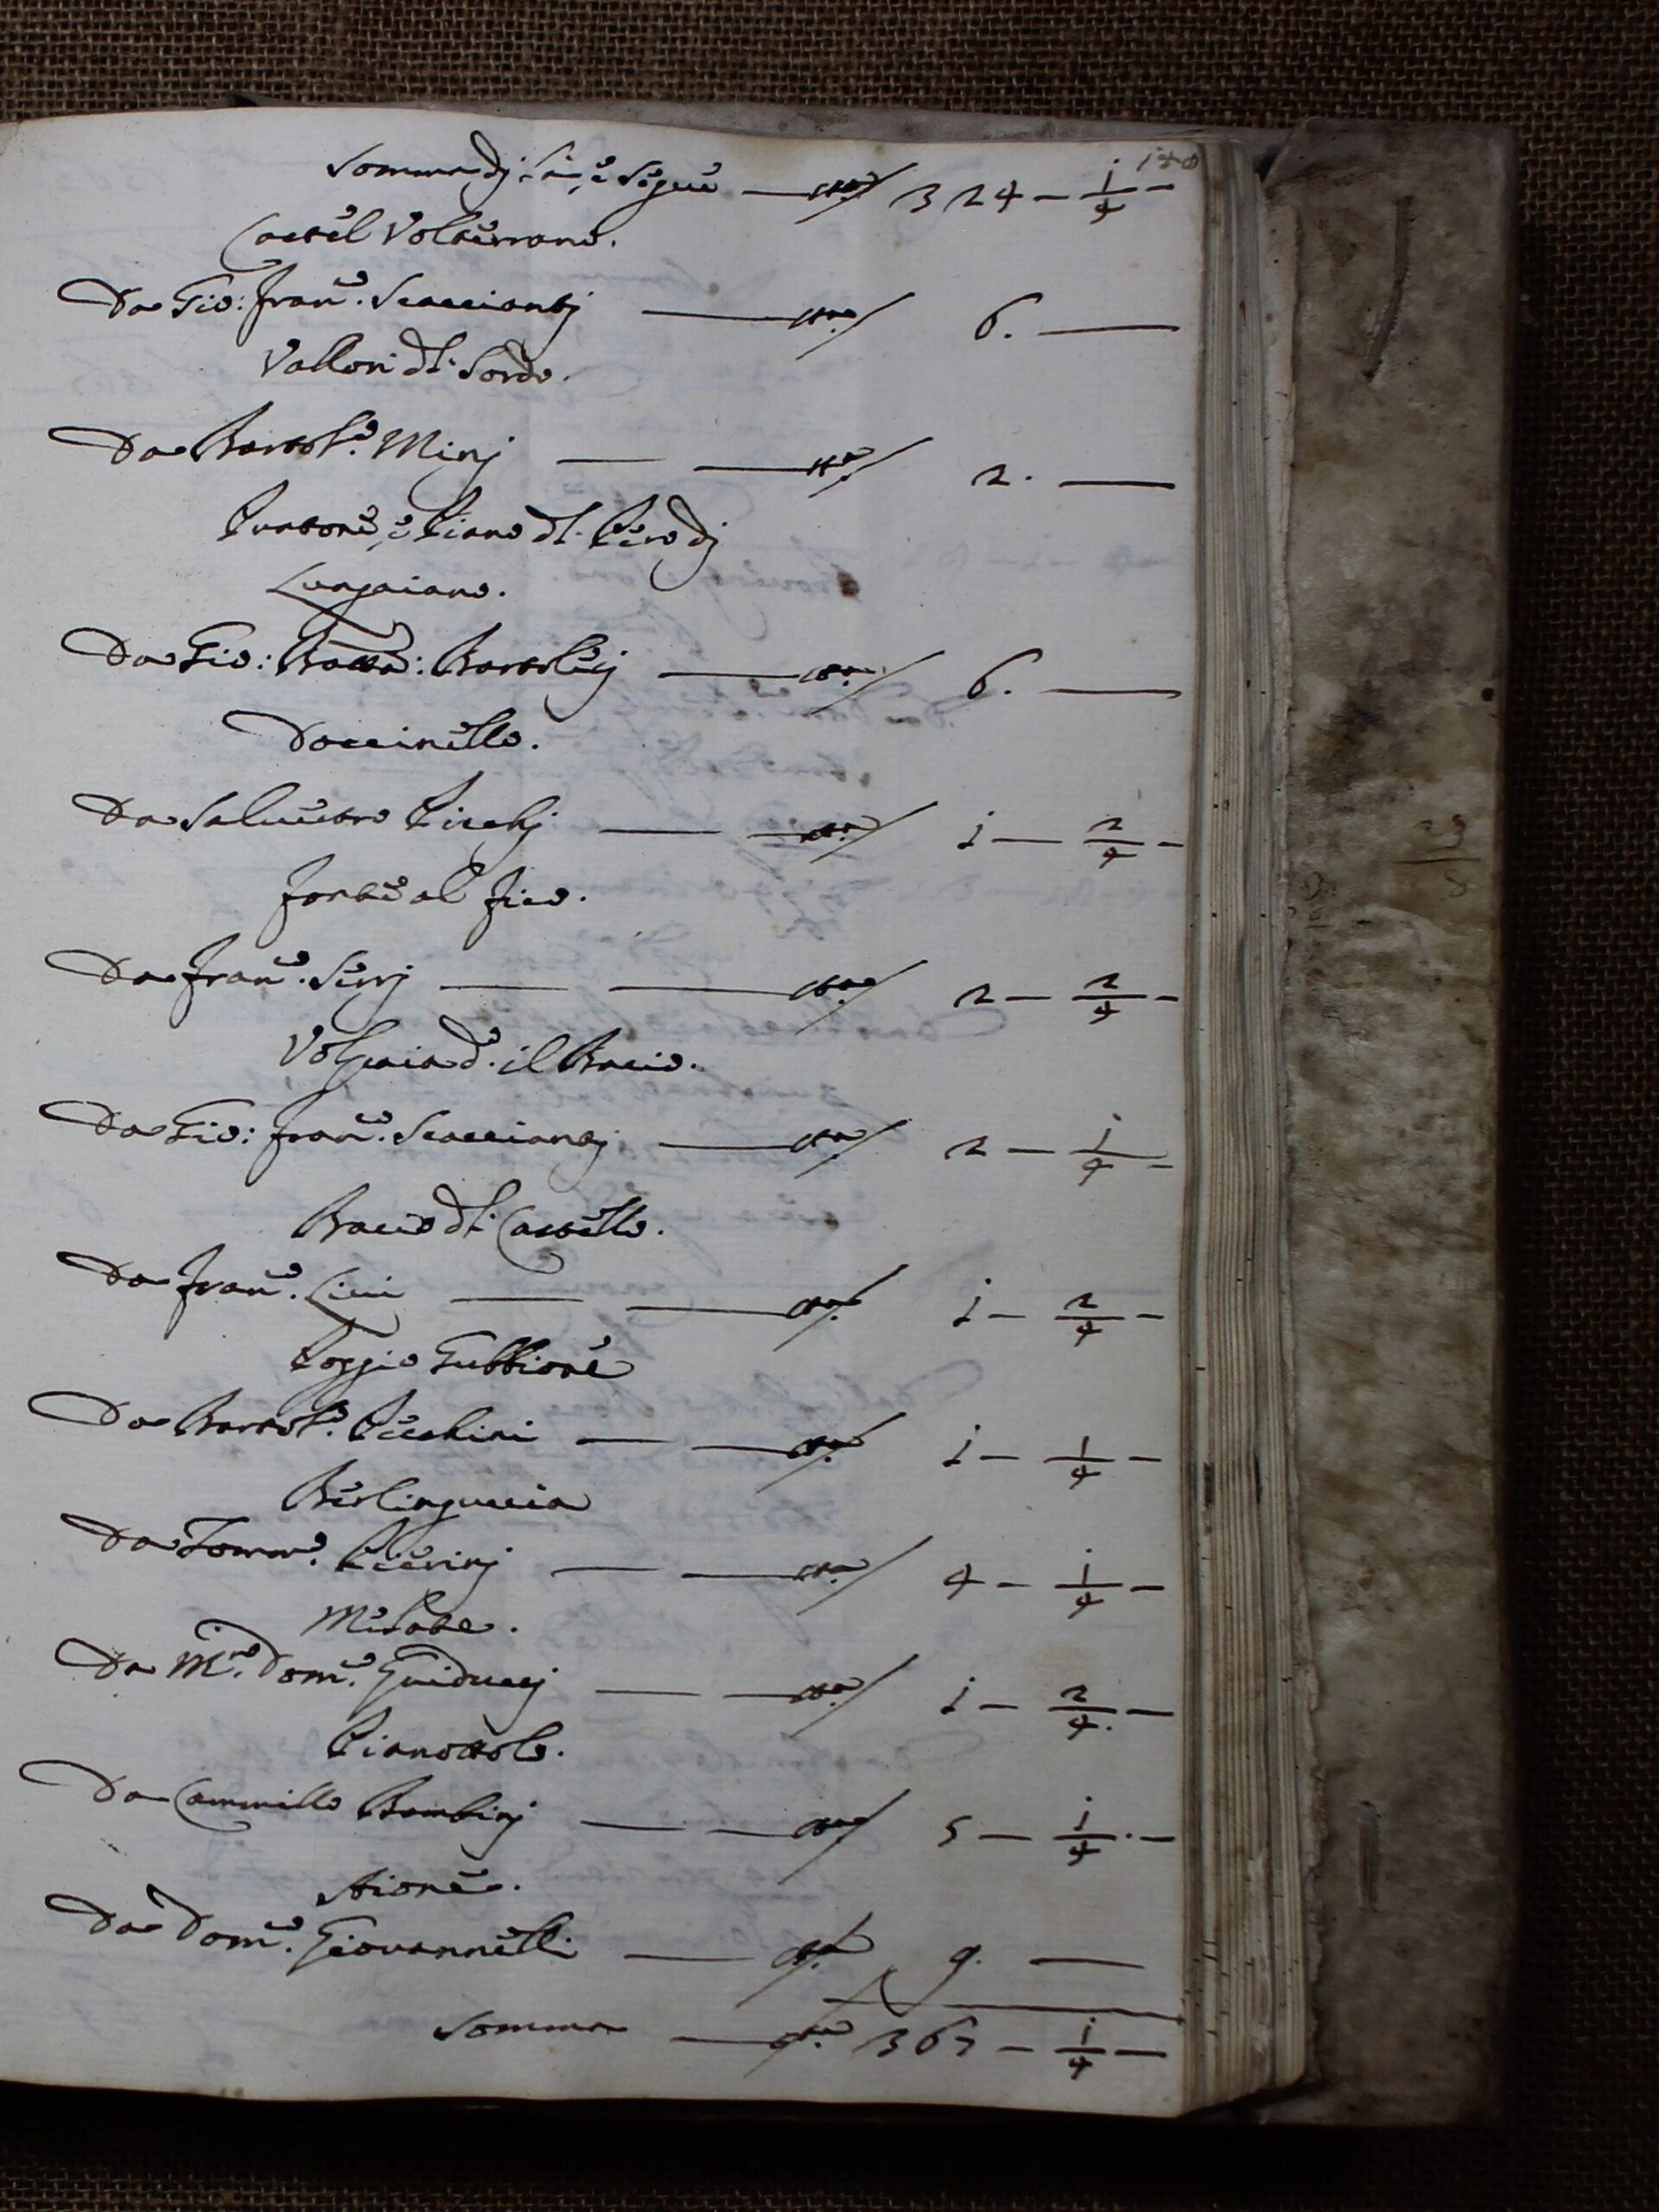 Somma di là, e segue — 324 - 1/4 -
Castel Volterrano.
Da Gio: Franc.º Scaccianti — 6. —
Valloni d.º Sordo.
Da Bartol.º Minj — — 2. —
Puntone, e Piano d.º Pero di
Lungaiano.
Da Gio: Batta: Bartolinj — 6. —
Doccinello.
Da Salvestro Picchj — — 1 — 2/4 -
Fonte al Fico.
Da Franc.º Serrj — — 2 — 2/4 -
Volpaia d.º il Bacio.
Da Gio: Franc.º Scaccianti — 2 — 1/4 -
Bacio d.º Castello.
Da Franc.º — — 1 — 2/4 -
Poggio Gubbione
Da Bartol.º Picchini — — 1 — 1/4 -
Berlinguccia
Da Tomm.º Pierinj — — 4 — 1/4 -
Melata.
Da M.º Dom.º Guiduccj — — 1 — 2/4. -
Pianottolo.
Da Cammillo Bombinj — — 5 — 1/4 . -
Stione.
Da Dom.º Giovannelli — 9. —
Somma — 367 — 1/4 —